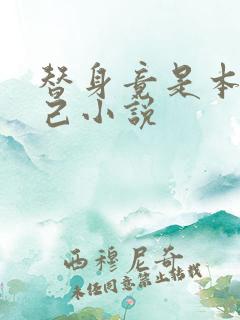 替身竟是本
己小说
西穆尼奇
未经同意禁止转载